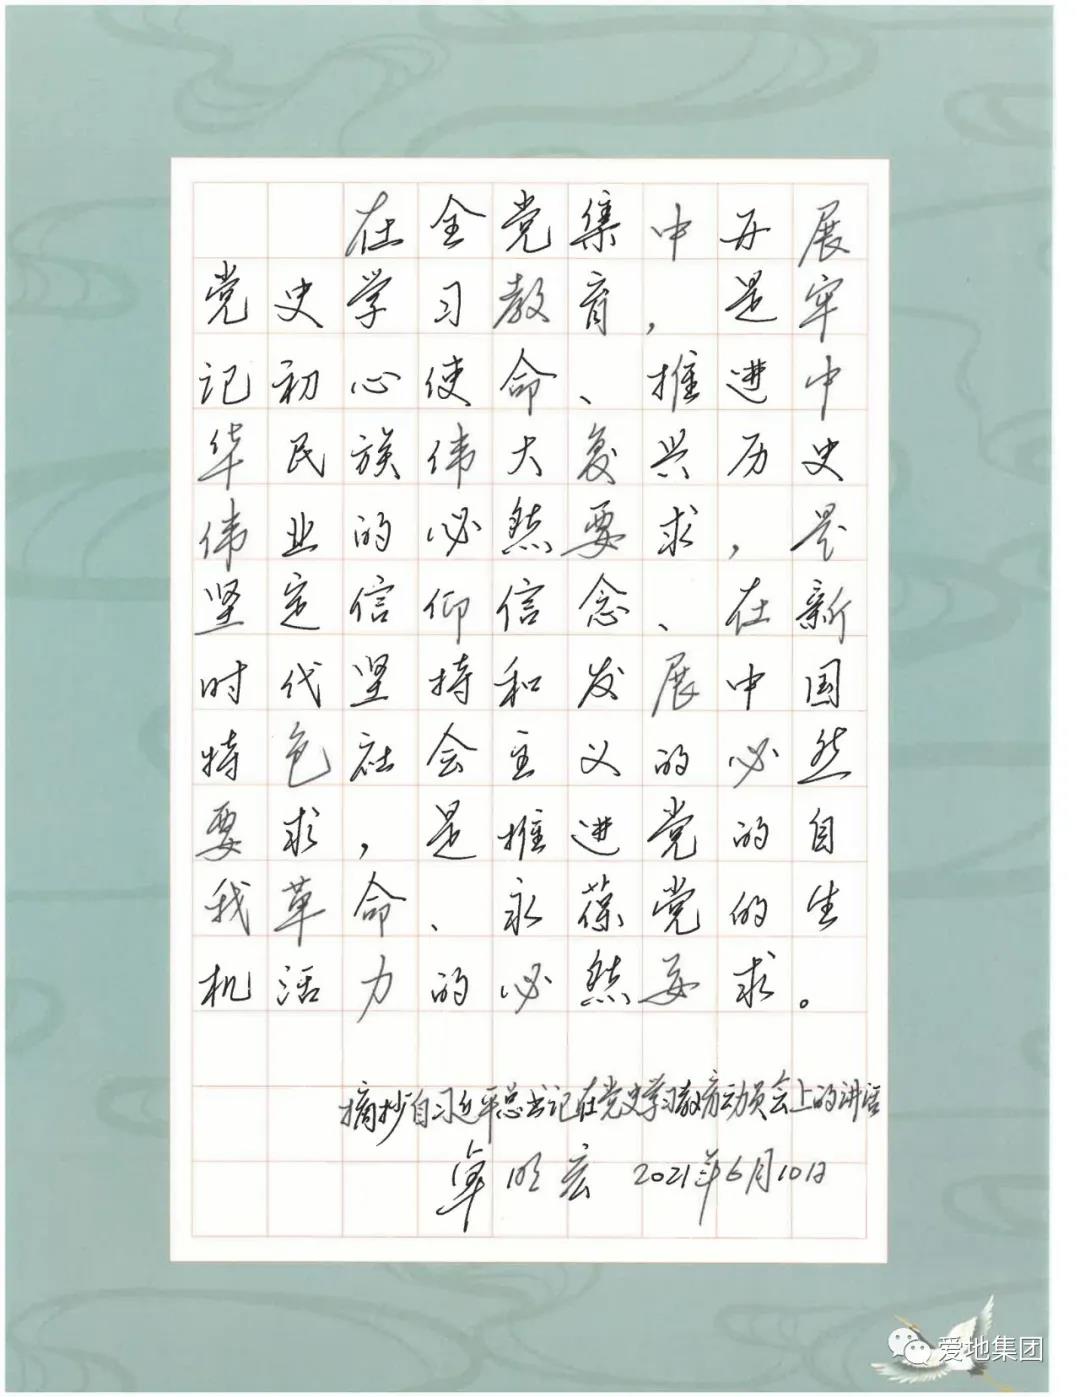 在全党集中开展
党史学习教育，是牢
记初心使命、推进中
华民族伟大复兴历史
伟业的必然要求，是
坚定信仰信念、在新
时代坚持和发展中国
特色社会主义的必然
要求，是推进党的自
我革命、永葆党的生
机活力的必然要求。
摘抄自习近平总书记在党史学习教育动员会上的讲话
卓明宏 2021年6月10日
爱地集团